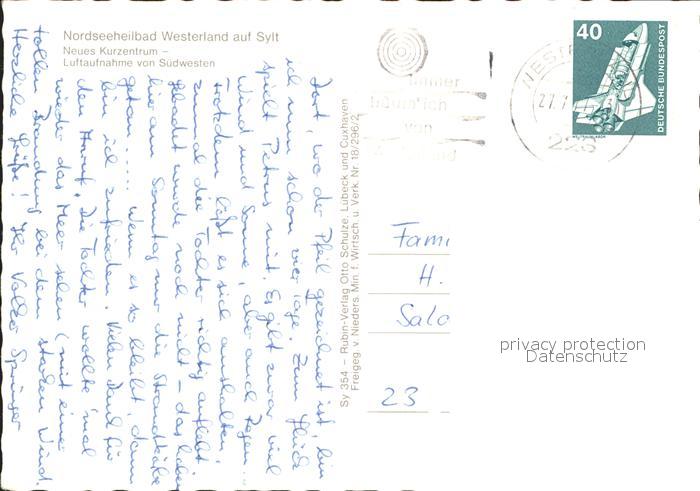 Nordseeheilbad Westerland auf Sylt
Neues Kurzentrum –
Luftaufnahme von Südwesten
Dort, wo der Pfeil gezeichnet ist, bin
ich nun schon vier Tage. Zum Glück
spielt Petrus mit. Es gibt zwar viel
Wind und Sonne, aber auch Regen...
Trotzdem läßt es sich aushalten,
zumal die Tochter richtig auflebt.
gebadet wurde noch nicht – das haben
am Sonntag nur die
getan.... Wenn es so bleibt, dann
bin ich zufrieden. Vielen Dank für
den Anruf. Die Tochter wollte 'mal
wieder das Meer sehen (mit einer
tollen Brandung bei dem starken Wind.
Herzliche Grüße! Ihr Volker Springer
Sy 354 – Rubin-Verlag Otto Schulze, Lübeck und Cuxhaven
Freigeg. v. Nieders. Min. f. Wirtsch. u. Verk. Nr. 18/296/2
immer
von
40
DEUTSCHE BUNDESPOST
WELTRAUMLABOR
WEST
27.7
228
Fami
H.
Salo
23
privacy protection
Datenschutz